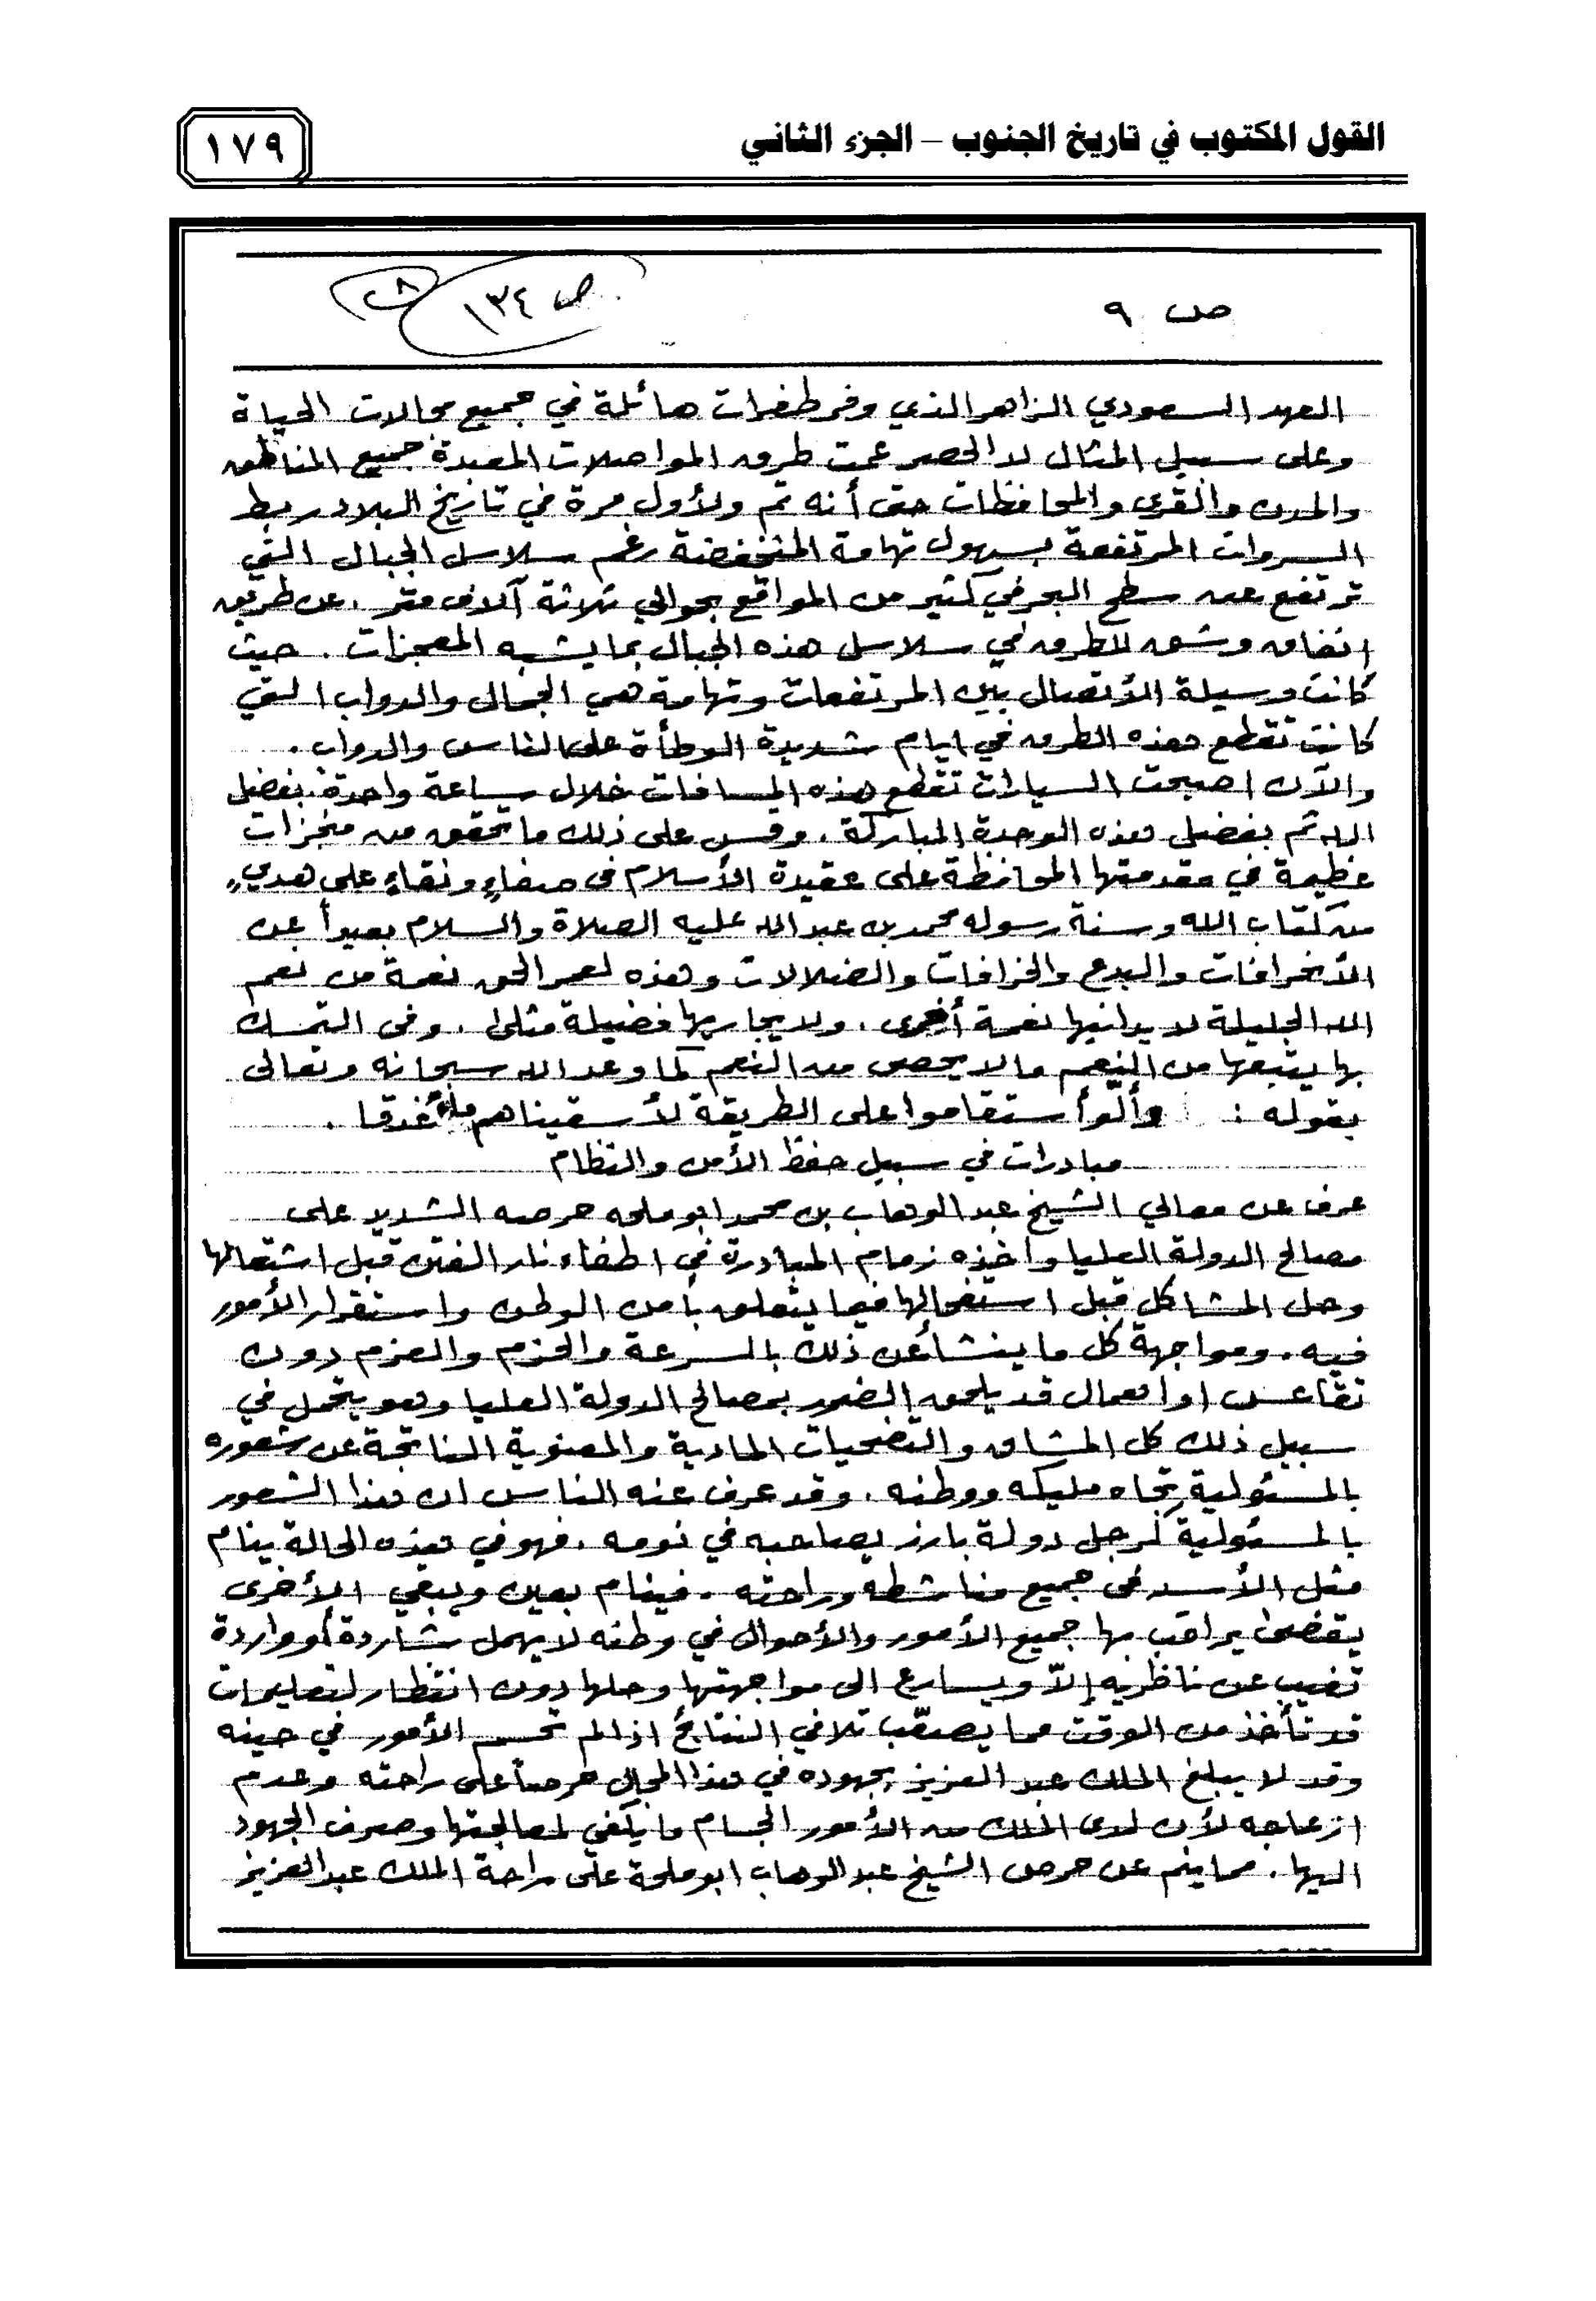 القول المكتوب في تاريخ الجنوب – الجزء الثاني
١٧٩
ص ٩
ص ١٣٤
العهد السعودي الزاهر الذي وفر طفرات هائلة في جميع مجالات الحياة
وعلى سبيل المثال لا الحصر عمت طرق المواصلات المعبدة جميع المناطق
والمدن والقرى والمحافظات حتى أنه تم ولأول مرة في تاريخ البلاد ربط
السروات المرتفعة بسهول تهامة المنخفضة رغم سلاسل الجبال التي
ترتفع عن سطح البحر في كثير من المواقع بحوالي ثلاثة آلاف متر . عن طريق
انفاق وشق للطرق في سلاسل هذه الجبال بما يشبه المعجزات . حيث
كانت وسيلة الأتصال بين المرتفعات وتهامة هي الجمال والدواب التي
كانت تقطع هذه الطرق في ايام شديدة الوطأة على الناس والدواب .
والآن اصبحت السيارات تقطع هذه المسافات خلال ساعة واحدة بفضل
الله ثم بفضل هذه الوحدة المباركة . وقس على ذلك ما تحقق من منجزات
عظيمة في مقدمتها المحافظة على عقيدة الأسلام فى صفاءٍ ونقاءٍ على هديٍ
من كتاب الله وسنة رسوله محمد بن عبد الله عليه الصلاة والسلام بعيداً عن
الأنحرافات والبدع والخرافات والضلالات وهذه لعمر الحق نعمة من نعم
الله الجليلة لا يدانيها نعمة أخرى . ولا يجاريها فضيلة مثلى . وفى التمسك
بها يتبعها من النعم مالا يحصى من النعم كما وعد الله سبحانه وتعالى
بقوله : وألّو أستقاموا على الطريقة لأسقيناهم ماءً غدقا .
مبادرات في سبيل حفظ الأمن والنظام
عرف عن معالي الشيخ عبد الوهاب بن محمد ابو ملحه حرصه الشديد على
مصالح الدولة العليا وأخذه زمام المبادرة في اطفاء نار الفتن قبل اشتعالها
وحل المشاكل قبل استفحالها فيما يتعلق بأمن الوطن واستقرار الأمور
فيه . ومواجهة كل ما ينشأ عن ذلك بالسرعة والحزم والعزم دون
تقاعس او اهمال قد يلحق الضرر بمصالح الدولة العليا وهو يتحمل في
سبيل ذلك كل المشاق والتضحيات المادية والمعنوية الناتجة عن شعوره
بالمسئولية تجاه مليكه ووطنه . وقد عرف عنه الناس ان هذا الشعور
بالمسئولية كرجل دولة بارز يصاحبه في نومه . فهو في هذه الحالة ينام
مثل الأسد فى جميع مناشطه وراحته . فينام بعين ويبقي الأخرى
يقضى يراقب بها جميع الأمور والأحوال في وطنه لا يهمل شاردة أو واردة
تغيب عن ناظريه إلاّ ويسارع الى مواجهتها وحلها دون انتظار لتعليمات
قد تأخذ من الوقت مما يصعّب تلافي النتائج اذا لم تحسم الأمور في حينه
وقد لا يبلغ الملك عبد العزيز بجهوده في هذا المجال حرصاً على راحته وعدم
ازعاجه لأن لدى الملك من الأمور الجسام ما يكفي لمعالجتها وصرف الجهود
اليها . مما ينم عن حرص الشيخ عبد الوهاب ابو ملحة على راحة الملك عبد العزيز